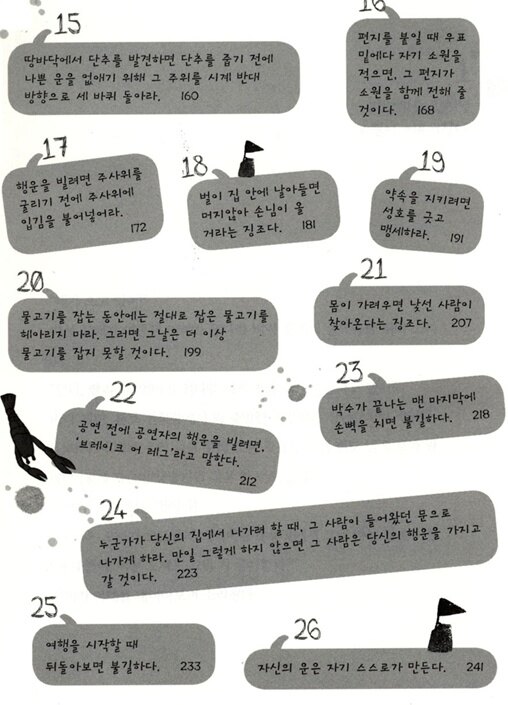 15
땅바닥에서 단추를 발견하면 단추를 줍기 전에
나쁜 운을 없애기 위해 그 주위를 시계 반대
방향으로 세 바퀴 돌아라. 160
16
편지를 붙일 때 우표
밑에다 자기 소원을
적으면, 그 편지가
소원을 함께 전해 줄
것이다. 168
17
행운을 빌려면 주사위를
굴리기 전에 주사위에
입김을 불어넣어라.
172
18
벌이 집 안에 날아들면
머지않아 손님이 올
거라는 징조다. 181
19
약속을 지키려면
성호를 긋고
맹세하라. 191
20
물고기를 잡는 동안에는 절대로 잡은 물고기를
헤아리지 마라. 그러면 그날은 더 이상
물고기를 잡지 못할 것이다. 199
21
몸이 가려우면 낯선 사람이
찾아온다는 징조다. 207
22
공연 전에 공연자의 행운을 빌려면,
‘브레이크 어 레그’라고 말한다.
212
23
박수가 끝나는 맨 마지막에
손뼉을 치면 불길하다. 218
24
누군가가 당신의 집에서 나가려 할 때, 그 사람이 들어왔던 문으로
나가게 하라. 만일 그렇게 하지 않으면 그 사람은 당신의 행운을 가지고
갈 것이다. 223
25
여행을 시작할 때
뒤돌아보면 불길하다. 233
26
자신의 운은 자기 스스로가 만든다. 241